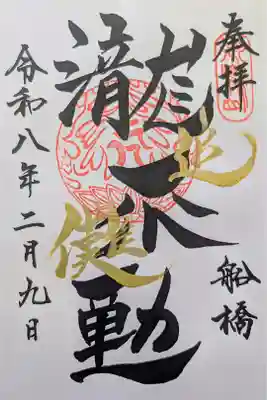 奉拝
船橋
瀧不動
令和八年二月九日